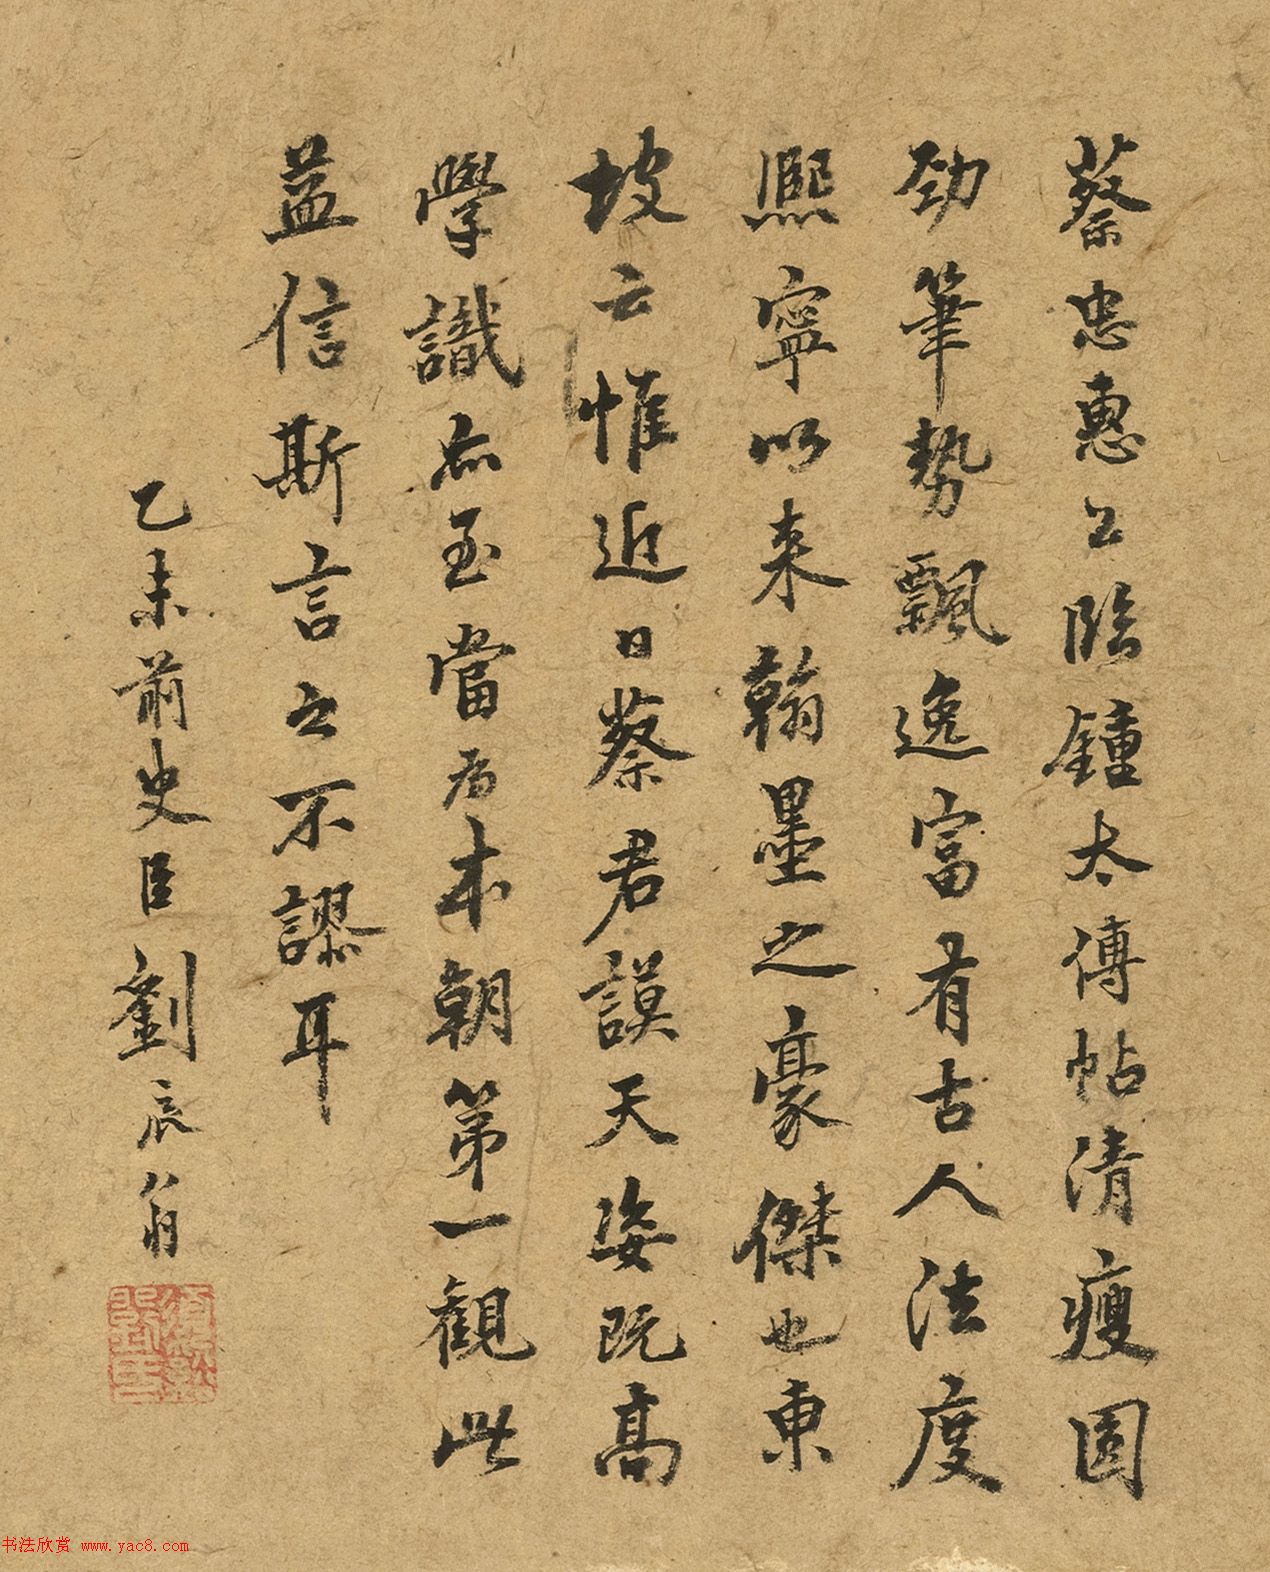 蔡忠惠公臨鍾太傅帖清瘦圓
勁筆勢飄逸富有古人法度
熙寧以來翰墨之豪傑也東
坡云惟近日蔡君謨天姿既高
學識亦至當為本朝第一觀此
益信斯言之不謬耳
乙未前史臣劉辰翁
书法欣赏 www.yac8.com